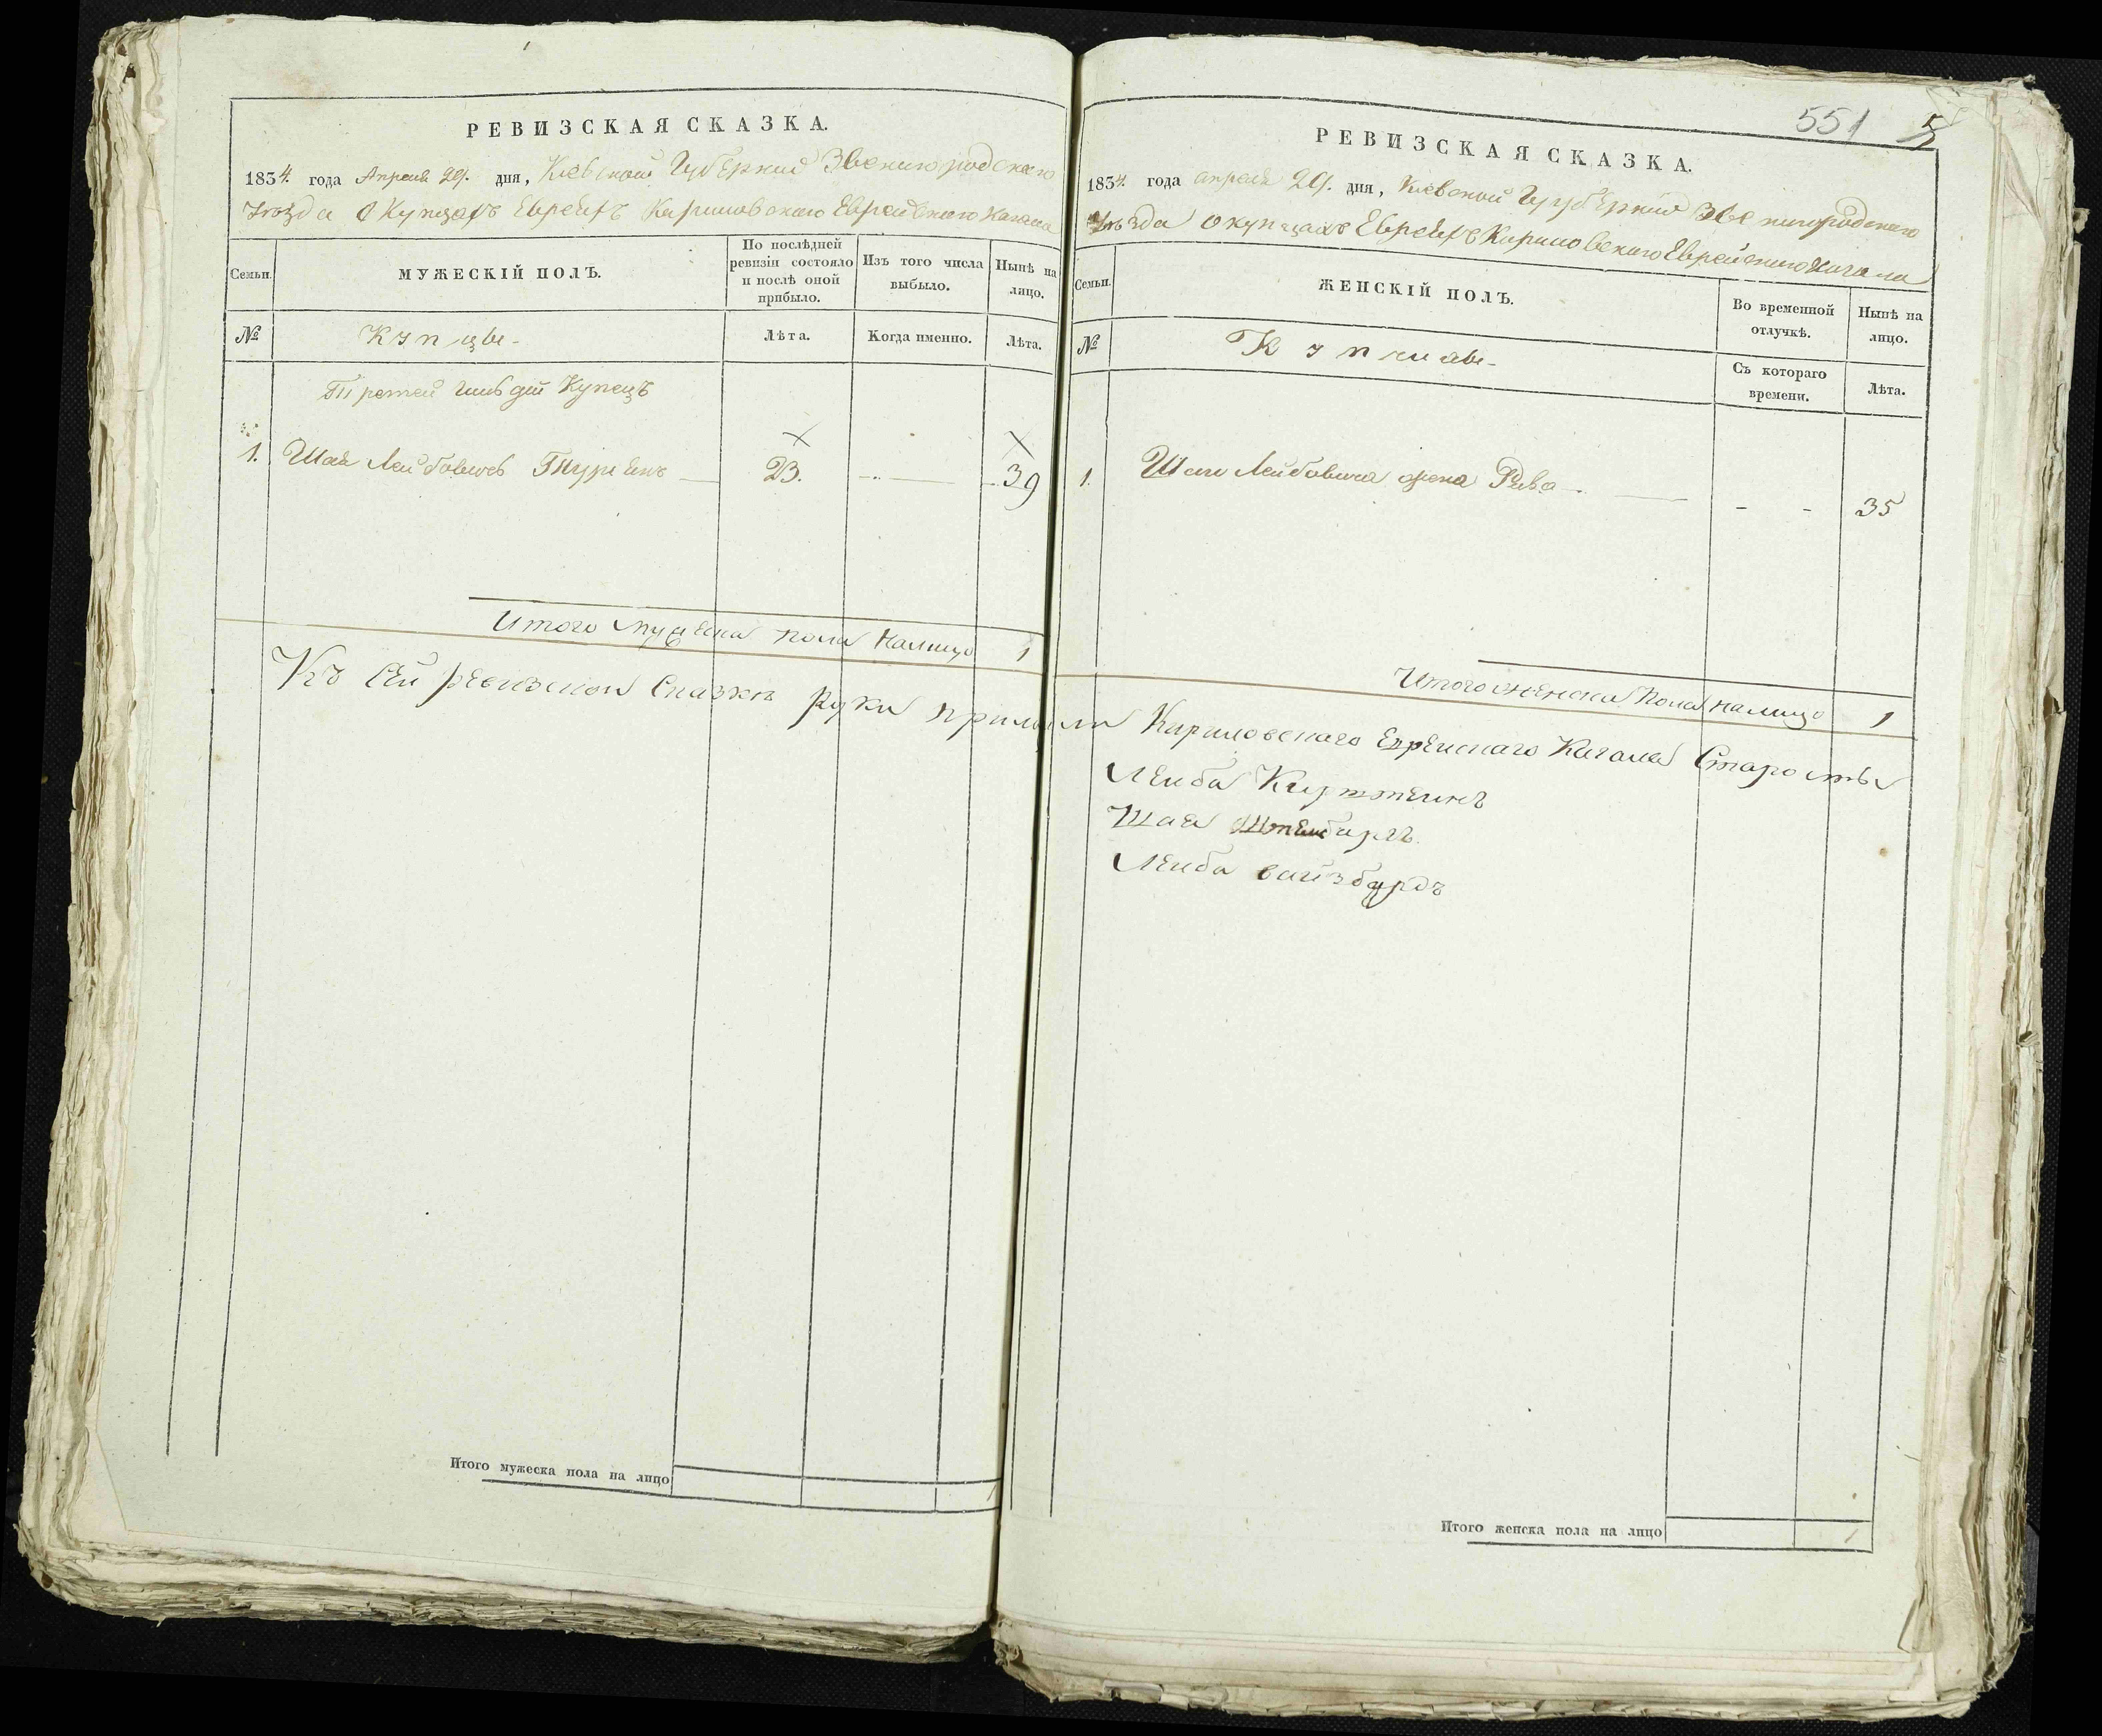 РЕВИЗСКАЯ СКАЗКА.
1834. года Апреля 29. дня, Кіевской Губерніи Звенигородскаго
Уѣзда О Купцахъ Евреяхъ Кириловскаго Еврейскаго Кагала
Семьи.
МУЖЕСКІЙ ПОЛЪ.
По послѣдней ревизіи состояло и послѣ оной прибыло.
Изъ того числа выбыло.
Нынѣ на лицо.
№
Купцы
Лѣта.
Когда именно.
Лѣта.
Третей гильдіи Купецъ
1. Шая Лейбовичъ 23. 39
Итого мужеска пола налицо 1
Итого мужеска пола на лицо 1
551
РЕВИЗСКАЯ СКАЗКА.
1834. года апреля 29. дня, Кіевской Губерніи Звенигородскаго
Уѣзда О купцахъ Евреяхъ Кириловскаго Еврейскаго Кагала
Семьи.
ЖЕНСКІЙ ПОЛЪ.
Во временной отлучкѣ.
Нынѣ на лицо.
№
Съ котораго времени.
Лѣта.
1. Шаи Лейбовича жена Рива - - 35
Итого женска пола налицо 1
Къ сей ревизской Сказкѣ руки приложили Кириловскаго Еврейскаго Кагала Старосты
Лейба
Шая
Лейба вайзбурдъ
Итого женска пола на лицо 1